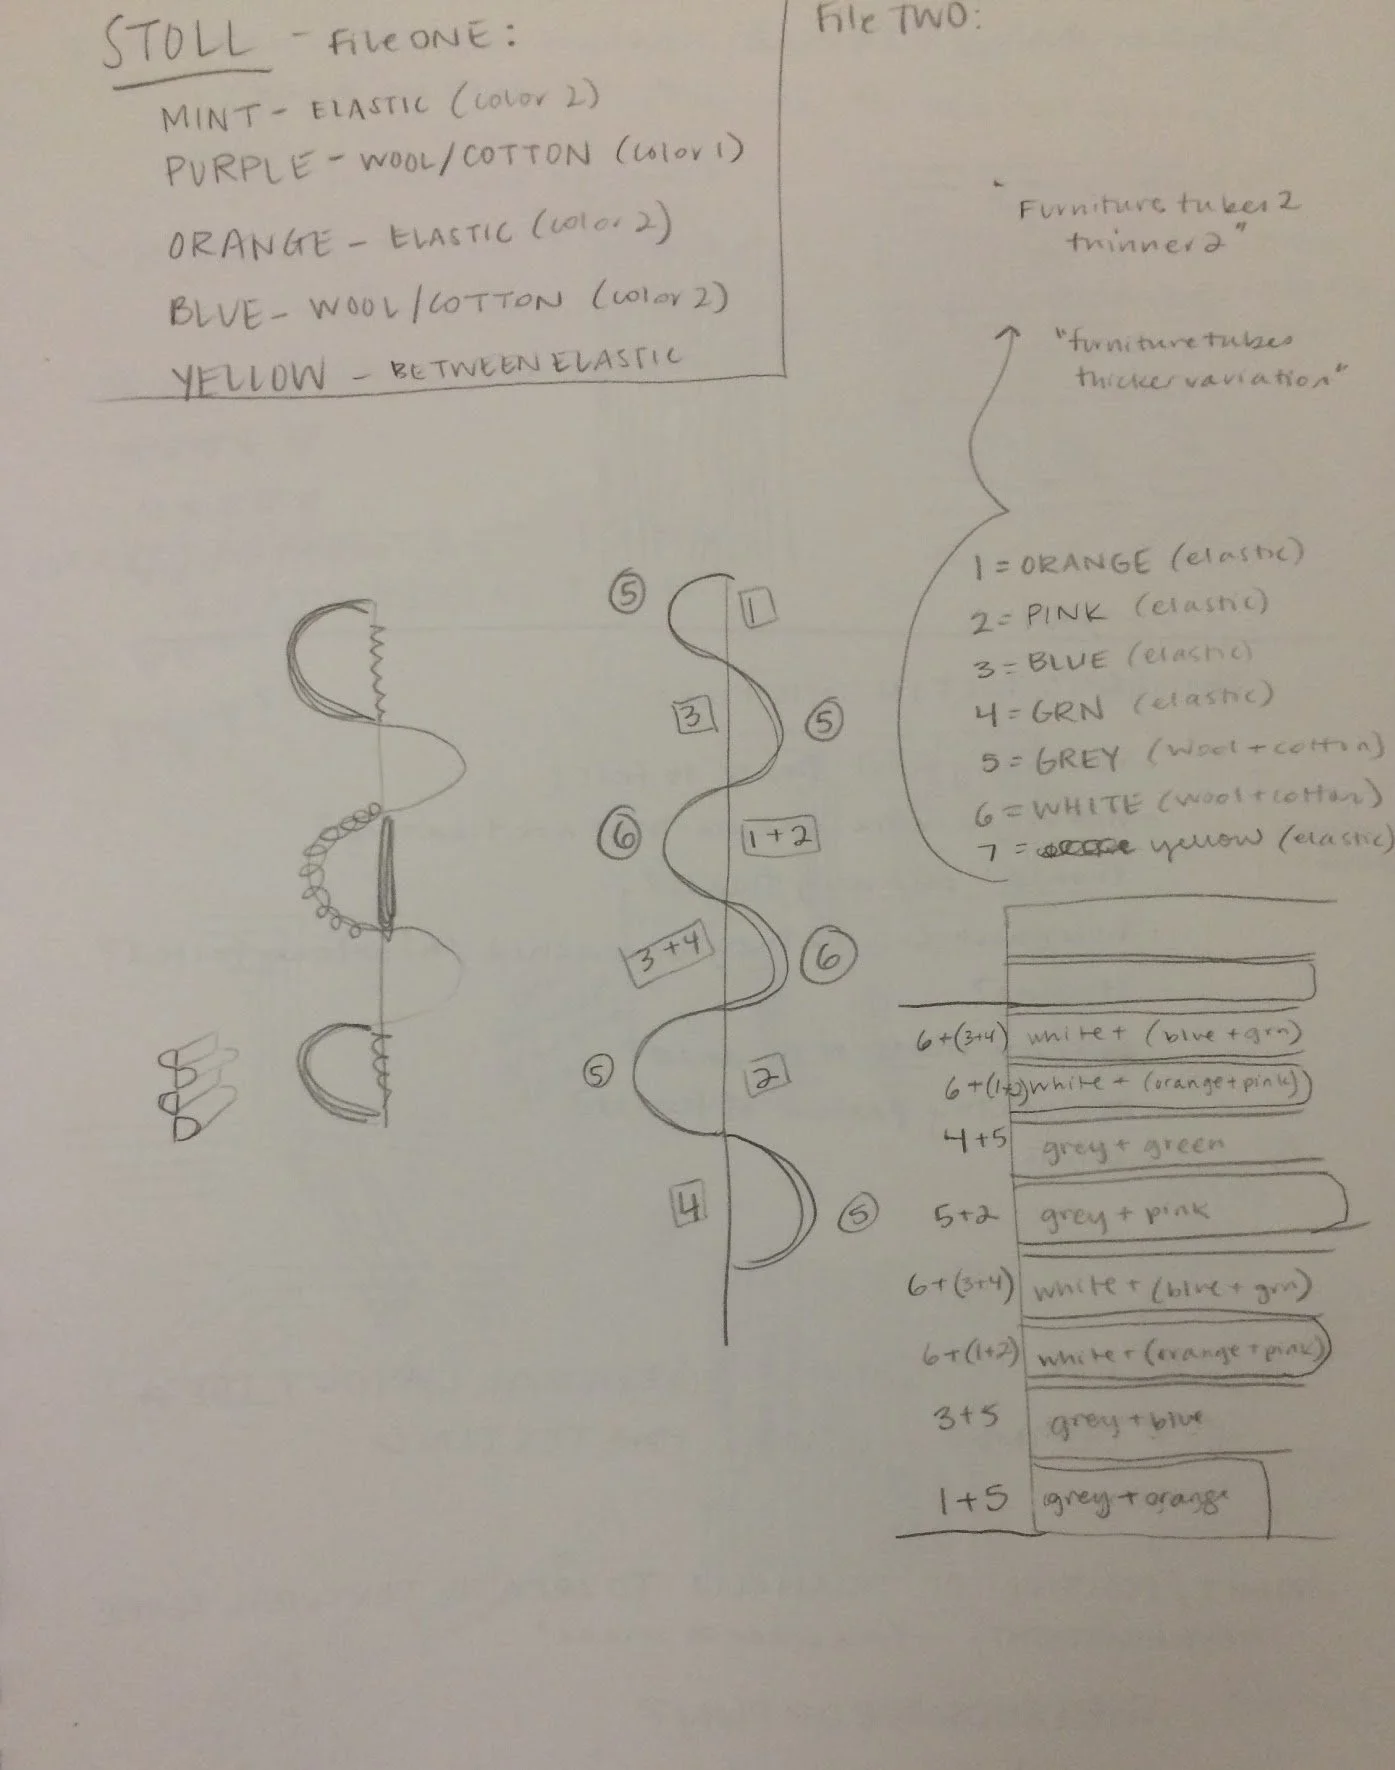 STOLL - File ONE:
MINT - ELASTIC (color 2)
PURPLE - WOOL/COTTON (color 1)
ORANGE - ELASTIC (color 2)
BLUE - WOOL/COTTON (color 2)
YELLOW - BETWEEN ELASTIC
File TWO:
"Furniture tubes 2
thinner 2"
"furniture tubes
thicker variation"
1 = ORANGE (elastic)
2 = PINK (elastic)
3 = BLUE (elastic)
4 = GRN (elastic)
5 = GREY (wool + cotton)
6 = WHITE (wool + cotton)
7 = yellow (elastic)
5 1
3 5
6 1+2
3+4 6
5 2
4 5
6+(3+4) white + (blue + grn)
6+(1+2) white + (orange + pink)
4+5 grey + green
5+2 grey + pink
6+(3+4) white + (blue + grn)
6+(1+2) white + (orange + pink)
3+5 grey + blue
1+5 grey + orange